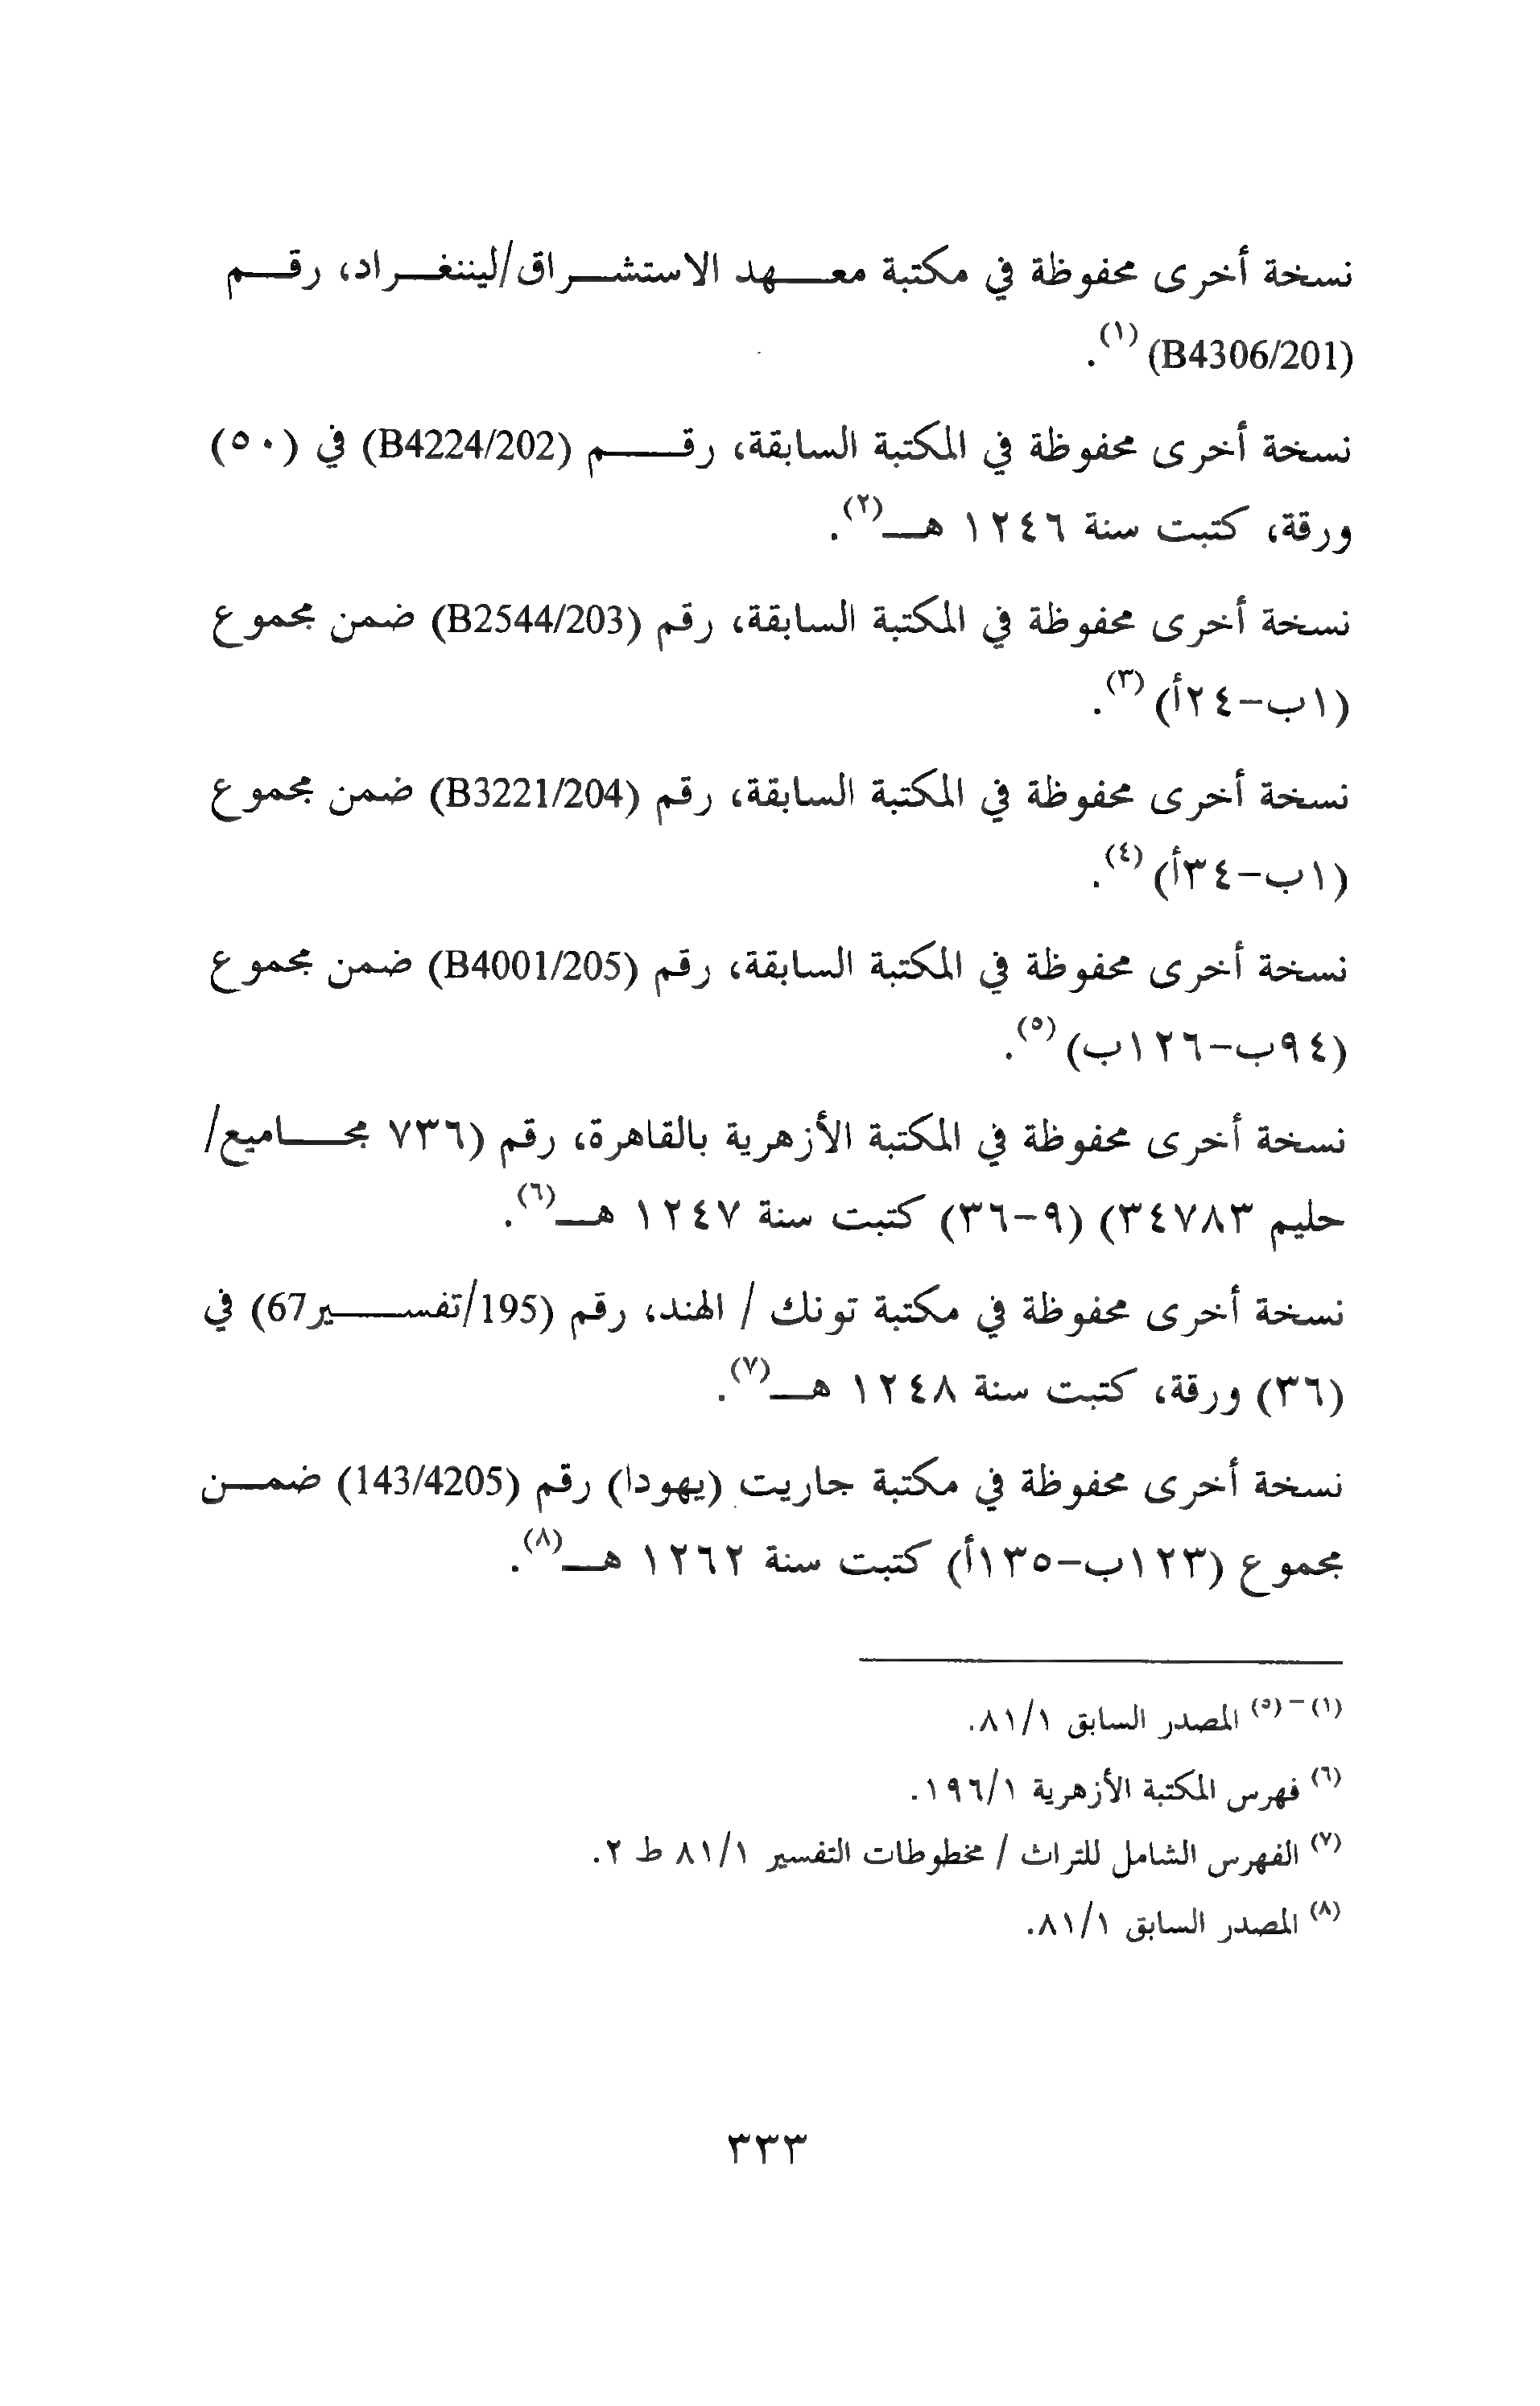 نسخة أخرى محفوظة في مكتبة معهد الاستشراق/ليننغراد، رقم
(B4306/201) (١).
نسخة أخرى محفوظة في المكتبة السابقة، رقم (B4224/202) في (٥٠)
ورقة، كتبت سنة ١٢٤٦ هـ(٢).
نسخة أخرى محفوظة في المكتبة السابقة، رقم (B2544/203) ضمن مجموع
(١ب-٢٤أ) (٣).
نسخة أخرى محفوظة في المكتبة السابقة، رقم (B3221/204) ضمن مجموع
(١ب-٣٤أ) (٤).
نسخة أخرى محفوظة في المكتبة السابقة، رقم (B4001/205) ضمن مجموع
(٩٤ب-١٢٦ب) (٥).
نسخة أخرى محفوظة في المكتبة الأزهرية بالقاهرة، رقم (٧٣٦ مجاميع/
حليم ٣٤٧٨٣) (٩-٣٦) كتبت سنة ١٢٤٧ هـ(٦).
نسخة أخرى محفوظة في مكتبة تونك / الهند، رقم (195/تفسير67) في
(٣٦) ورقة، كتبت سنة ١٢٤٨ هـ(٧).
نسخة أخرى محفوظة في مكتبة جاريت (يهودا) رقم (143/4205) ضمن
مجموع (١٢٣ب-١٣٥أ) كتبت سنة ١٢٦٢ هـ(٨).
(١) – (٥) المصدر السابق ٨١/١.
(٦) فهرس المكتبة الأزهرية ١٩٦/١.
(٧) الفهرس الشامل للتراث / مخطوطات التفسير ٨١/١ ط ٢.
(٨) المصدر السابق ٨١/١.
٣٣٣